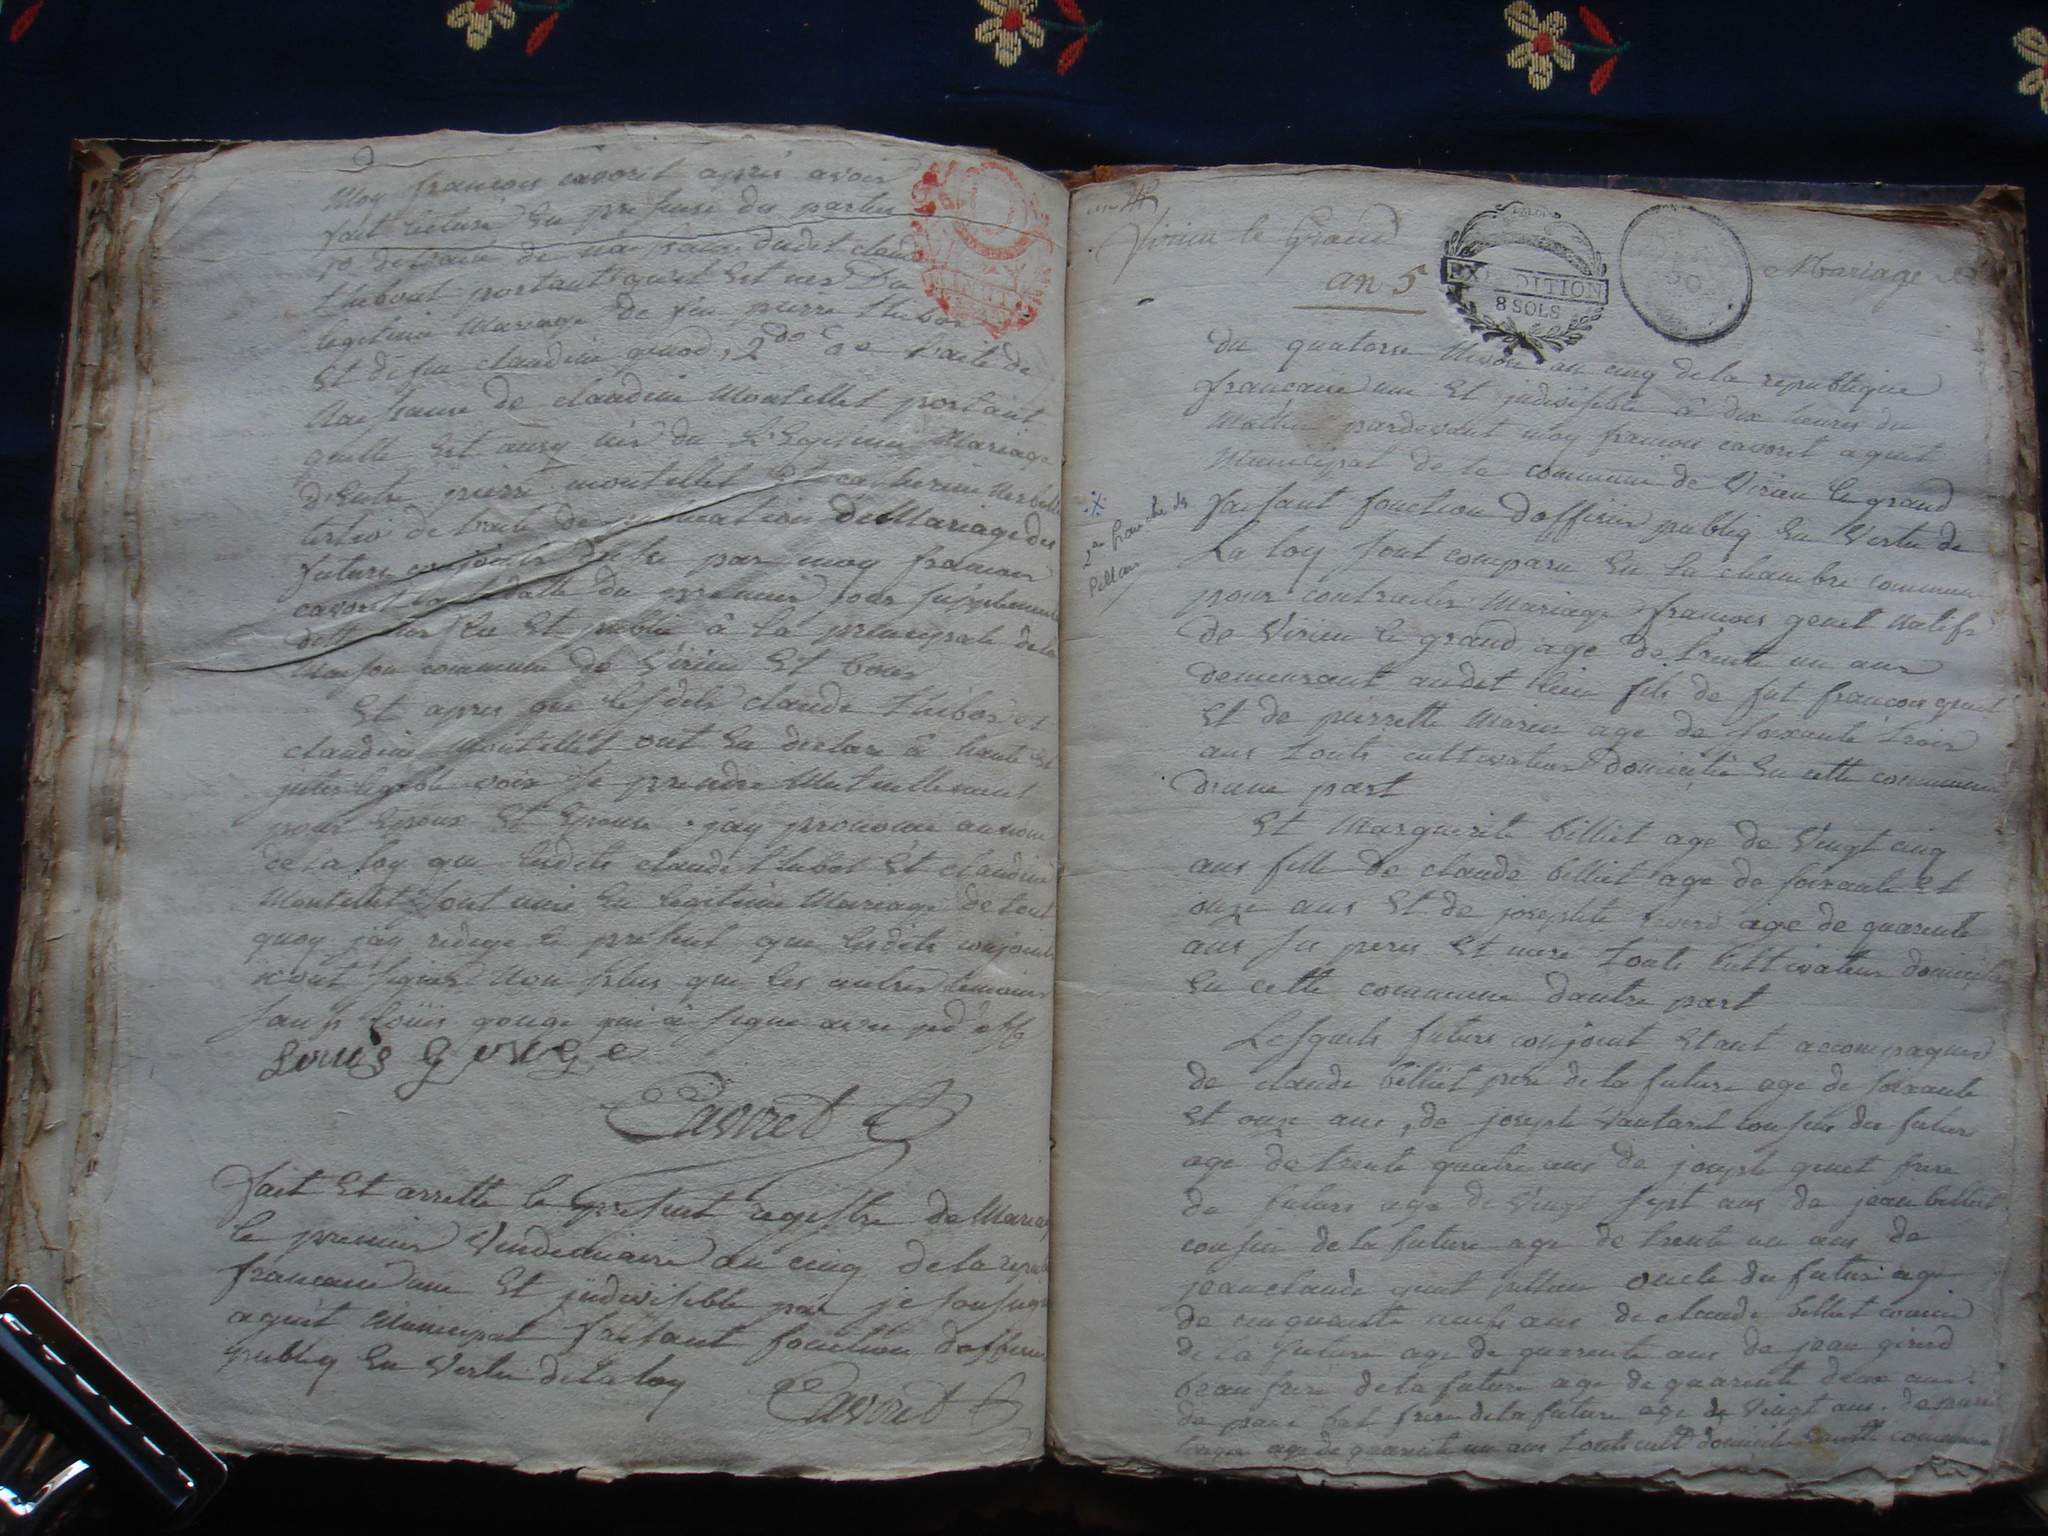 Moy francois cavoret apres avoir
fait lecture en presence des parties
1º de traite de naissance dudit claude
thibout portant quil est nes du
legitime Mariage de feu pierre thibos
Et de feu claudine genod, 2do traite de
Naissance de claudine Montellet portant
quelle est aussy née du Legitime Mariage
d'Entre pierre montellet et catherine
tertio de traite de publication de Mariage des
futurs conjoints par moy francois
cavoret datte du premier jour supplementaire
lu Et publie à la principale de la
Maison commune de virieu Et bons
Et apres que lesdits claude thibos et
claudine Montellet ont Eu declare à haute Et
voix se prendre Mutuellement
pour Epoux Et Epouse. jay prononce au nom
de la loy que lesdits claude thibos Et claudine
Montellet sont unis En legitime Mariage de tout
quoy jay redige le present que lesdits conjoints
n'ont signes Non plus que les autres temoins
sauf loüis gouge qui à signe avec
Louis Gouge
Cavoret
fait Et arrette le present registre de Mariage
le premier Vendemiaire an cinq de la republ
francaise une Et jndivisible par je sousigne
agent Municipal faisant fonction dofficier
publiq En Vertu de la loy
Cavoret
Virieu le Grand
an 5
EXPEDITION
8 SOLS
Mariage
du quatorse Nivose an cinq de la republique
francaise une Et jndivisible à dix heures du
Matin pardevant moy francois cavoret agent
Municipal de la commune de Virieu le grand
faisant fonction dofficier publiq En Vertu de
La loy sont comparu En la chambre commune
2e branche des
Pillau
pour contracter Mariage francois genet Natif
de Virieu le grand age de trente un ans
demeurant audit lieu fils de fut francois genet
Et de pierrette Marin age de soixante trois
ans touts cultivateur domicilie En cette commune
dune part
Et Marguerite billiet age de Vingt cinq
ans fille de claude billiet age de soixante Et
onze ans Et de josephte age de quarente
ans ses pere Et mere touts Cultivateur domicilie
En cette commune dautre part
Lesquels futurs conjoint Etant accompagnes
de claude billiet pere de la future age de soixante
Et onze ans, de joseph Vautaret cousin du futur
age de trente quatre ans de joseph genet frere
du futur age de Vingt sept ans de jean billiet
cousin de la future age de trente un ans de
jean claude genet pillau oncle du futur age
de cinquante ans de claude billiet cousin
de la future age de quarente ans de jean girerd
beau frere de la future age de quarente deux ans.
de frere de la future age de Vingt ans. de
age de quarente un ans touts cult domicilie commune